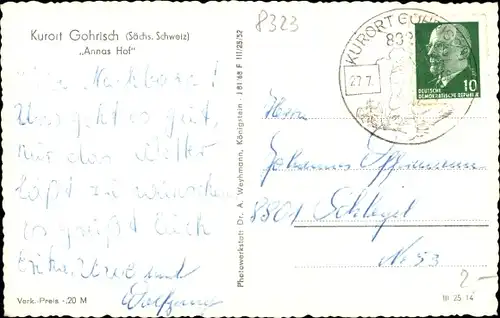 Kurort Gohrisch (Sächs. Schweiz)
„Annas Hof"
8323
KURORT GOHR
83
27.7.
10
DEUTSCHE
DEMOKRATISCHE REPUBLIK
Uns geht es gut,
nur das Wetter
läßt zu wünschen
es grüßt Euch
und
Wolfgang
Verk.-Preis -,20 M
Photowerkstatt Dr. A. Weyhmann, Königstein · J 81/68 F III/25/52
Herrn
Johannes
8801 Schlegel
Nr. 53
2,-
III 25 14